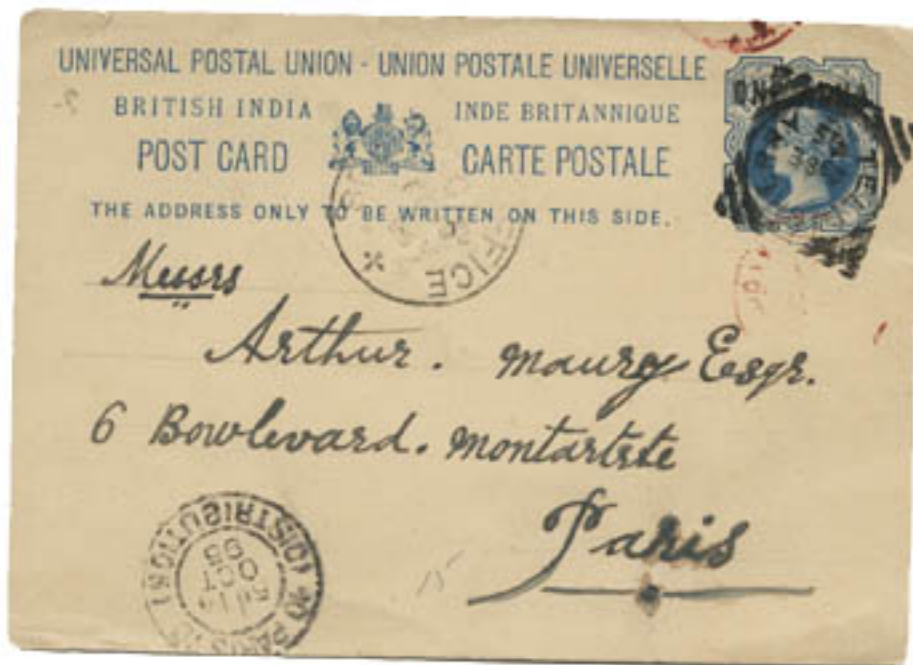 UNIVERSAL POSTAL UNION - UNION POSTALE UNIVERSELLE
BRITISH INDIA INDE BRITANNIQUE
POST CARD CARTE POSTALE
THE ADDRESS ONLY TO BE WRITTEN ON THIS SIDE.
Messrs
Arthur. Maury Esqr.
6 Bowlevard. Montartrte
Paris
(DISTRIBUTION)
OCT
95
PARIS